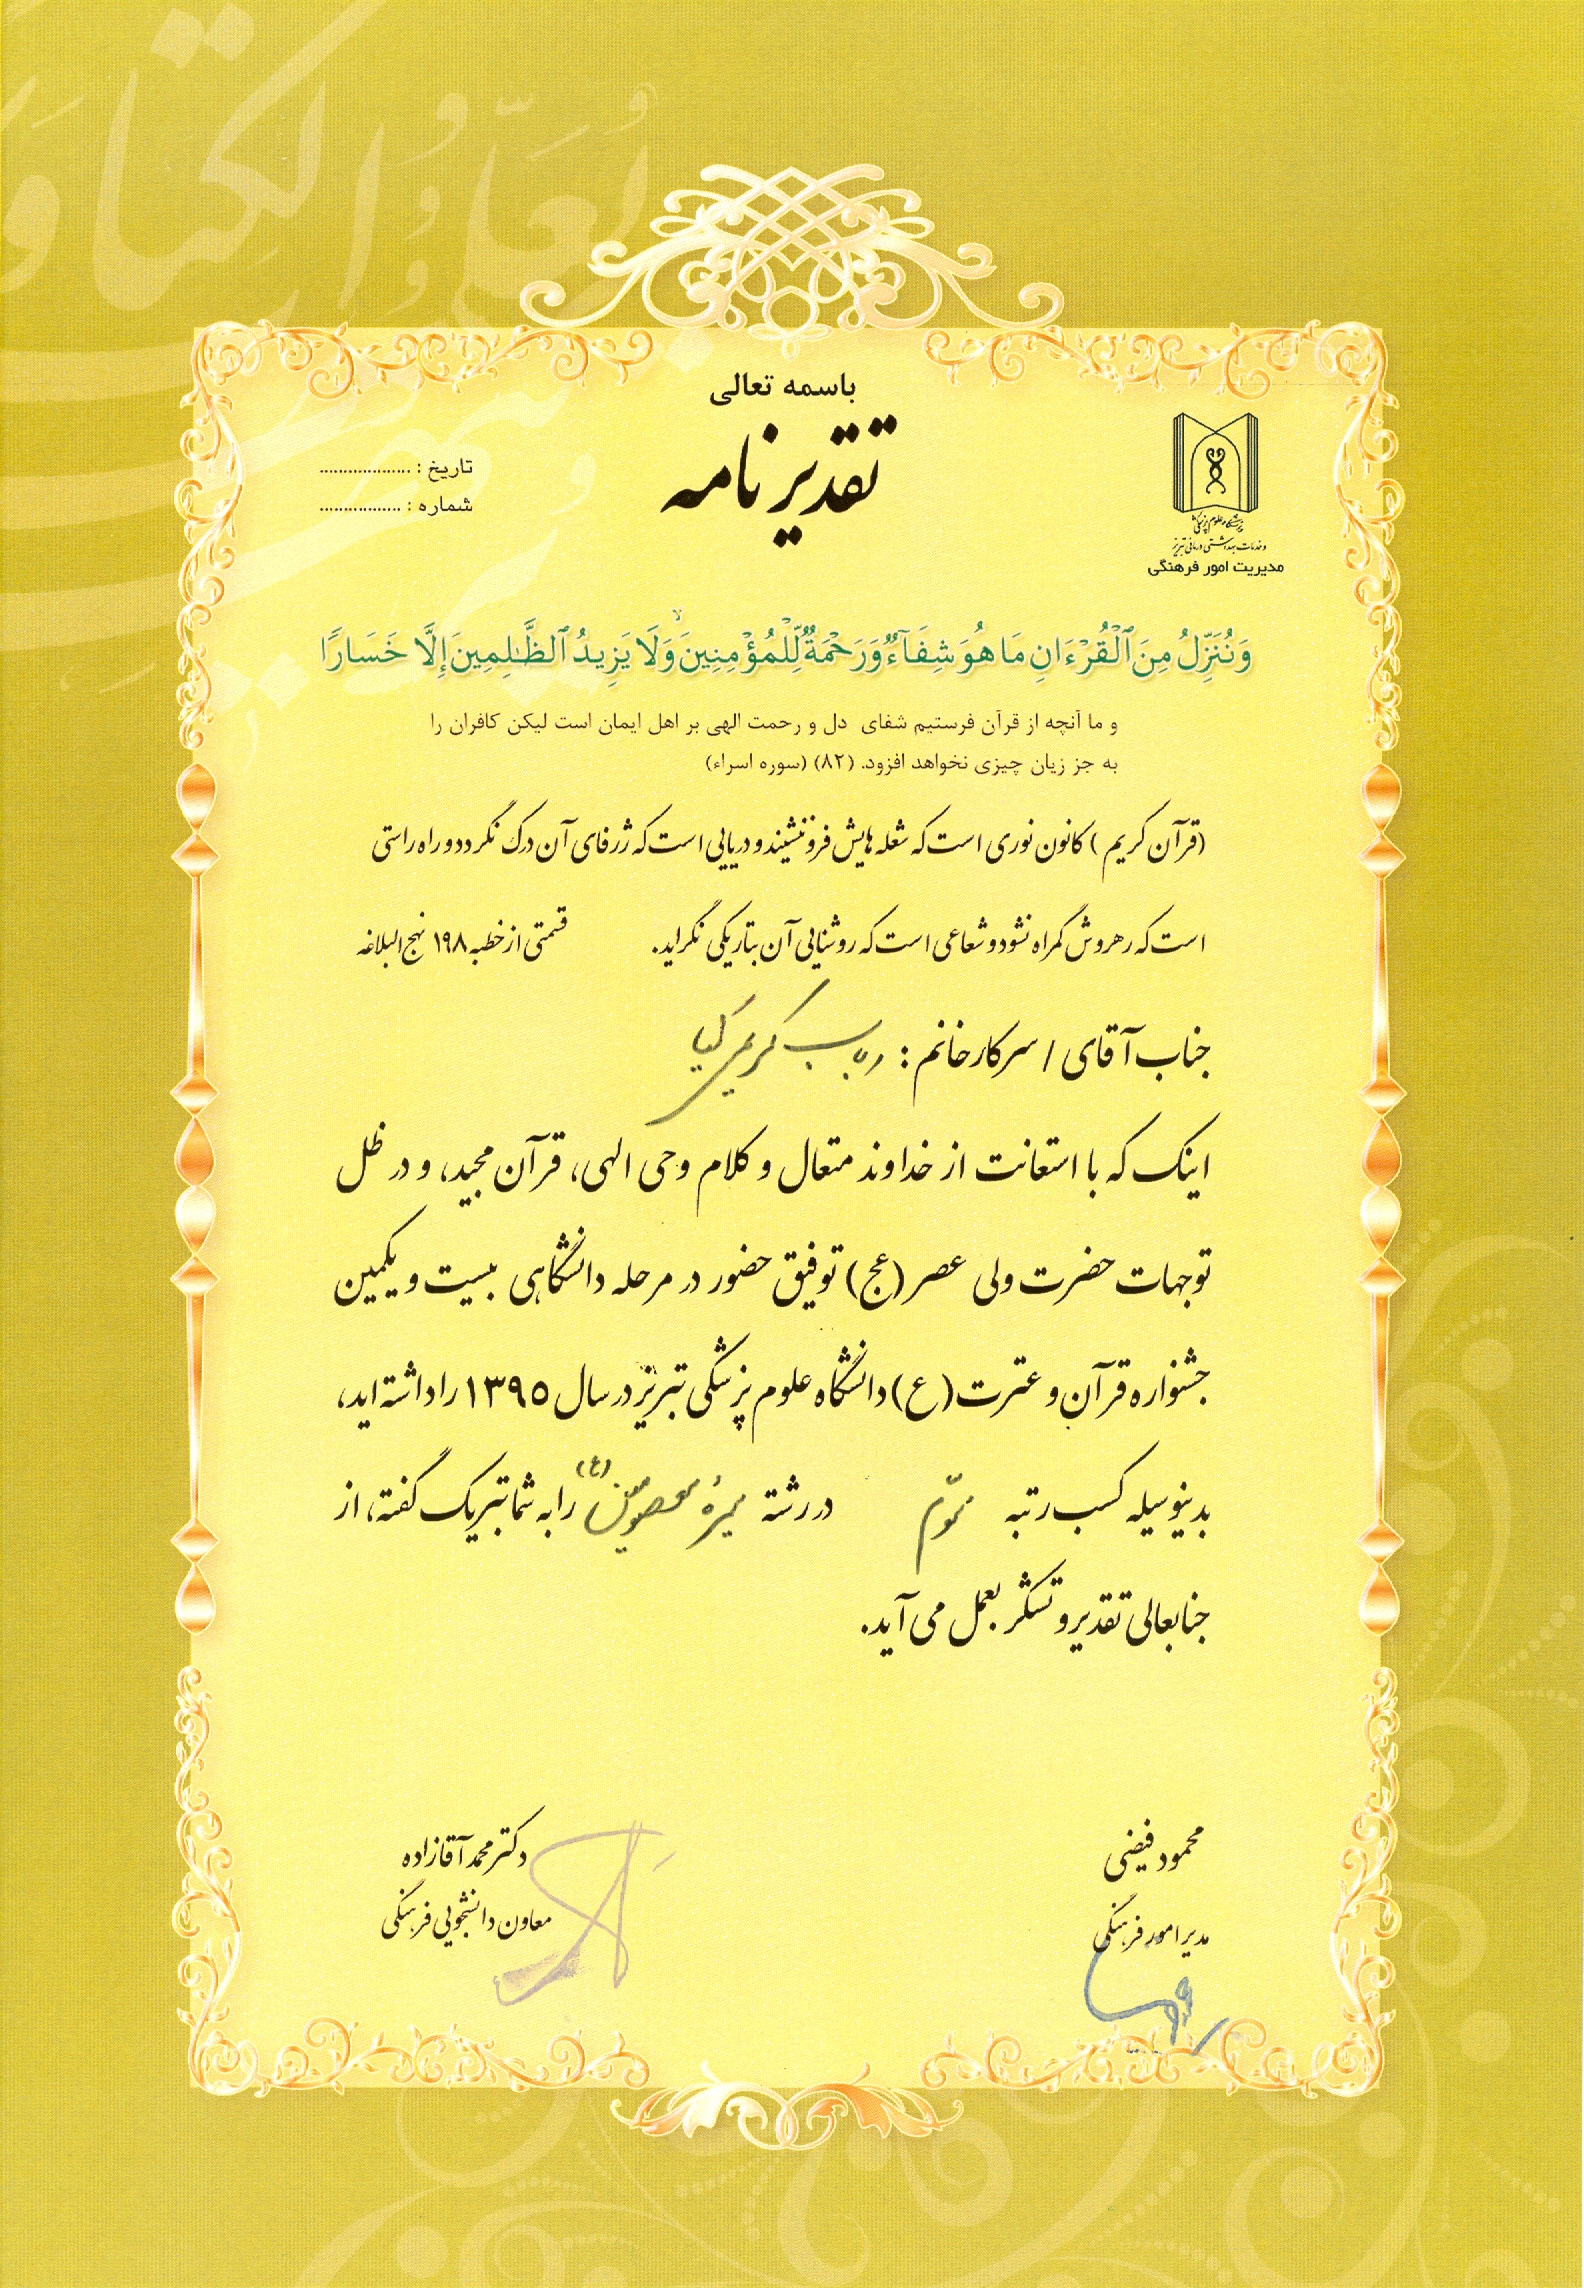 باسمه تعالی
تقدیرنامه
تاریخ : ....................
شماره : .................
دانشگاه علوم پزشکی
و خدمات بهداشتی درمانی تبریز
مدیریت امور فرهنگی
وَنُنَزِّلُ مِنَ ٱلْقُرْءَانِ مَا هُوَ شِفَآءٌ وَرَحْمَةٌ لِّلْمُؤْمِنِينَ ۙ وَلَا يَزِيدُ ٱلظَّـٰلِمِينَ إِلَّا خَسَارًا
و ما آنچه از قرآن فرستیم شفای دل و رحمت الهی بر اهل ایمان است لیکن کافران را
به جز زیان چیزی نخواهد افزود. (۸۲) (سوره اسراء)
(قرآن کریم) کانون نوری است که شعله هایش فرو ننشیند و دریایی است که ژرفای آن درک نگردد و راه راستی
است که رهروش گمراه نشود و شعاعی است که روشنایی آن بتاریکی نگراید. قسمتی از خطبه ۱۹۸ نهج البلاغه
جناب آقای / سرکار خانم : رباب کریمی کیا
اینک که با استعانت از خداوند متعال و کلام وحی الهی، قرآن مجید، و در ظل
توجهات حضرت ولی عصر (عج) توفیق حضور در مرحله دانشگاهی بیست و یکمین
جشنواره قرآن و عترت (ع) دانشگاه علوم پزشکی تبریز در سال ۱۳۹۵ را داشته اید،
بدینوسیله کسب رتبه سوّم در رشته سیرهٔ معصومین (ع) را به شما تبریک گفته، از
جنابعالی تقدیر و تشکر بعمل می آید.
محمود فیضی
مدیر امور فرهنگی
دکتر محمد آقازاده
معاون دانشجویی فرهنگی